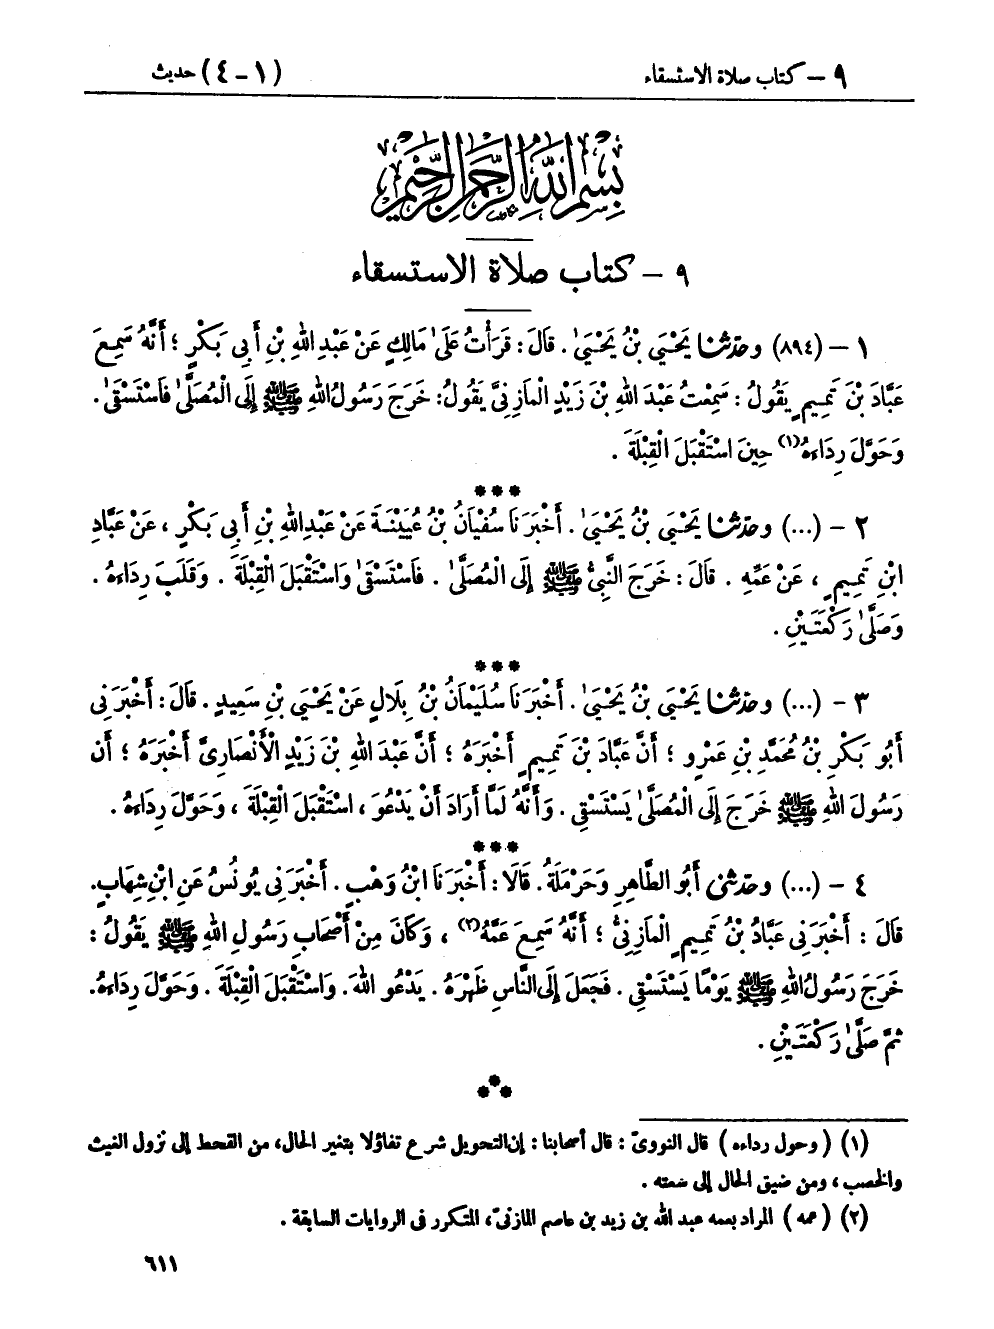 ٩ – كتاب صلاة الاستسقاء
(١–٤) حديث
بِسْمِ اللَّهِ الرَّحْمَٰنِ الرَّحِيمِ
٩ – كتاب صلاة الاستسقاء
١ – (٨٩٤) وحدّثنا يَحْيَىٰ بْنُ يَحْيَىٰ . قَالَ : قَرَأْتُ عَلَىٰ مَالِكٍ عَنْ عَبْدِ اللهِ بْنِ أَبِي بَكْرٍ ؛ أَنَّهُ سَمِعَ
عَبَّادَ بْنَ تَمِيمٍ يَقُولُ : سَمِعْتُ عَبْدَ اللهِ بْنَ زَيْدٍ الْمَازِنِيَّ يَقُولُ : خَرَجَ رَسُولُ اللهِ ﷺ إِلَى الْمُصَلَّىٰ فَاسْتَسْقَىٰ .
وَحَوَّلَ رِدَاءَهُ(١) حِينَ اسْتَقْبَلَ الْقِبْلَةَ .
***
٢ – (...) وحدّثنا يَحْيَىٰ بْنُ يَحْيَىٰ . أَخْبَرَنَا سُفْيَانُ بْنُ عُيَيْنَةَ عَنْ عَبْدِ اللهِ بْنِ أَبِي بَكْرٍ ، عَنْ عَبَّادِ
ابْنِ تَمِيمٍ ، عَنْ عَمِّهِ . قَالَ : خَرَجَ النَّبِيُّ ﷺ إِلَى الْمُصَلَّىٰ . فَاسْتَسْقَىٰ وَاسْتَقْبَلَ الْقِبْلَةَ . وَقَلَبَ رِدَاءَهُ .
وَصَلَّىٰ رَكْعَتَيْنِ .
***
٣ – (...) وحدّثنا يَحْيَىٰ بْنُ يَحْيَىٰ . أَخْبَرَنَا سُلَيْمَانُ بْنُ بِلَالٍ عَنْ يَحْيَى بْنِ سَعِيدٍ . قَالَ : أَخْبَرَنِي
أَبُو بَكْرِ بْنُ مُحَمَّدِ بْنِ عَمْرٍو ؛ أَنَّ عَبَّادَ بْنَ تَمِيمٍ أَخْبَرَهُ ؛ أَنَّ عَبْدَ اللهِ بْنَ زَيْدٍ الْأَنْصَارِيَّ أَخْبَرَهُ ؛ أَنَّ
رَسُولَ اللهِ ﷺ خَرَجَ إِلَى الْمُصَلَّىٰ يَسْتَسْقِي . وَأَنَّهُ لَمَّا أَرَادَ أَنْ يَدْعُوَ ، اسْتَقْبَلَ الْقِبْلَةَ ، وَحَوَّلَ رِدَاءَهُ .
***
٤ – (...) وحدّثني أَبُو الطَّاهِرِ وَحَرْمَلَةُ . قَالَا : أَخْبَرَنَا ابْنُ وَهْبٍ . أَخْبَرَنِي يُونُسُ عَنِ ابْنِ شِهَابٍ .
قَالَ : أَخْبَرَنِي عَبَّادُ بْنُ تَمِيمٍ الْمَازِنِيُّ ؛ أَنَّهُ سَمِعَ عَمَّهُ(٢) ، وَكَانَ مِنْ أَصْحَابِ رَسُولِ اللهِ ﷺ يَقُولُ :
خَرَجَ رَسُولُ اللهِ ﷺ يَوْمًا يَسْتَسْقِي . فَجَعَلَ إِلَى النَّاسِ ظَهْرَهُ . يَدْعُو اللهَ . وَاسْتَقْبَلَ الْقِبْلَةَ . وَحَوَّلَ رِدَاءَهُ .
ثُمَّ صَلَّىٰ رَكْعَتَيْنِ .
***
(١) (وحول رداءه) قال النوويّ : قال أصحابنا : إن التحويل شرع تفاؤلا بتغير الحال، من القحط إلى نزول الغيث
والخصب ، ومن ضيق الحال إلى سعته .
(٢) (عمه) المراد بعمه عبد الله بن زيد بن عاصم المازنيّ، المتكرر في الروايات السابقة .
٦١١